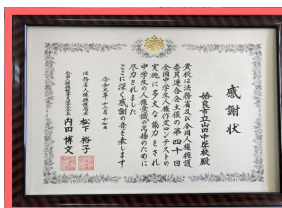 感謝状
姶良市立山田中学校殿
貴校は法務省及び全国人権擁護
委員連合会主催の第四十回
全国中学生人権作文コンテストの
実施に多大な協力をされ
中学生の人権意識の高揚のために
尽力されました
ここに深く感謝の意を表します
法務省人権擁護局長
松下裕子
全国人権擁護委員連合会長
内田博文